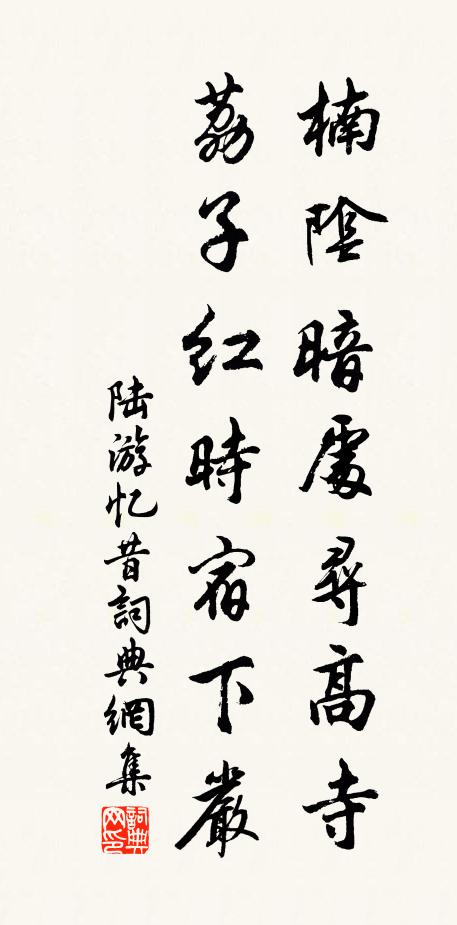 楠陰暗處尋高寺
荔子紅時宿下巖
陆游忆昔詞典網集
詞典网印